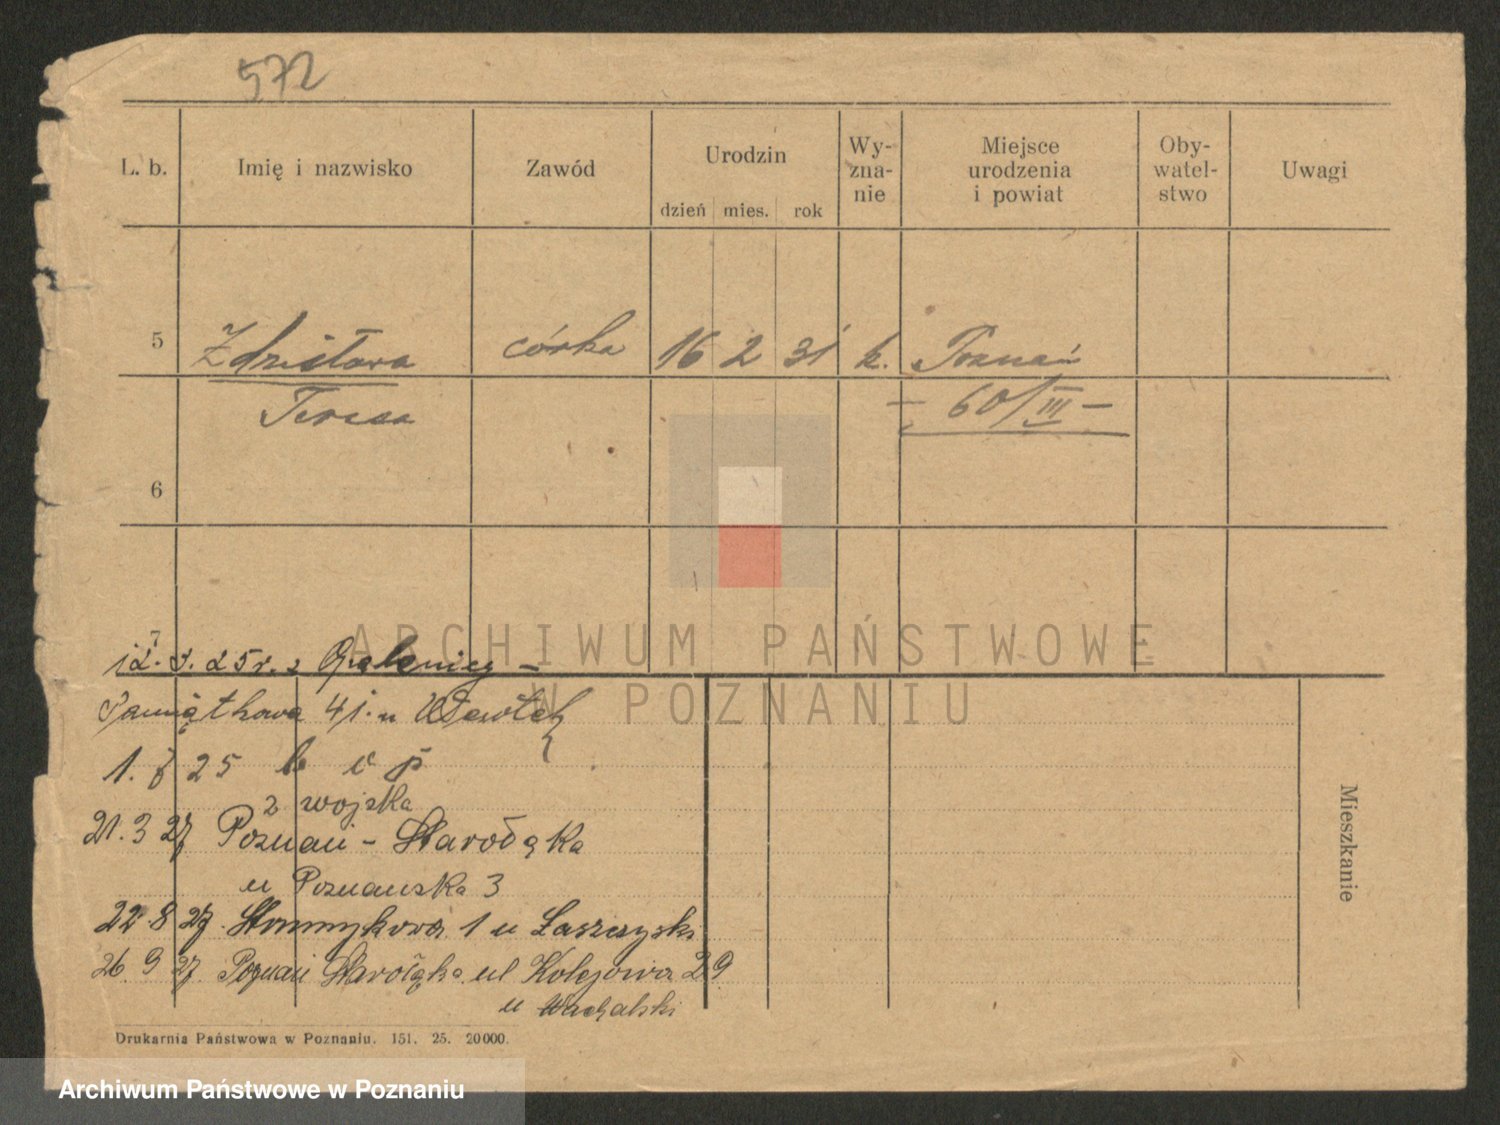 572
L. b. Imię i nazwisko Zawód Urodzin Wy-zna-nie Miejsce urodzenia i powiat Oby-watel-stwo Uwagi
dzień mies. rok
5 Zdzisława córka 16 2 31 k. Poznań
Teresa — 60/III —
6
7
12. 25 r. z
ARCHIWUM PAŃSTWOWE
W POZNANIU
Pamiątkowa 41. u
1. 25
z wojska
21. 3 27 Poznań - Starołęka
u Poznańska 3
22. 8 27. 1 u Łaszczyski
26. 9 27. Poznań Starołęka ul Kolejowa 29
u
Mieszkanie
Drukarnia Państwowa w Poznaniu. 151. 25. 20000.
Archiwum Państwowe w Poznaniu